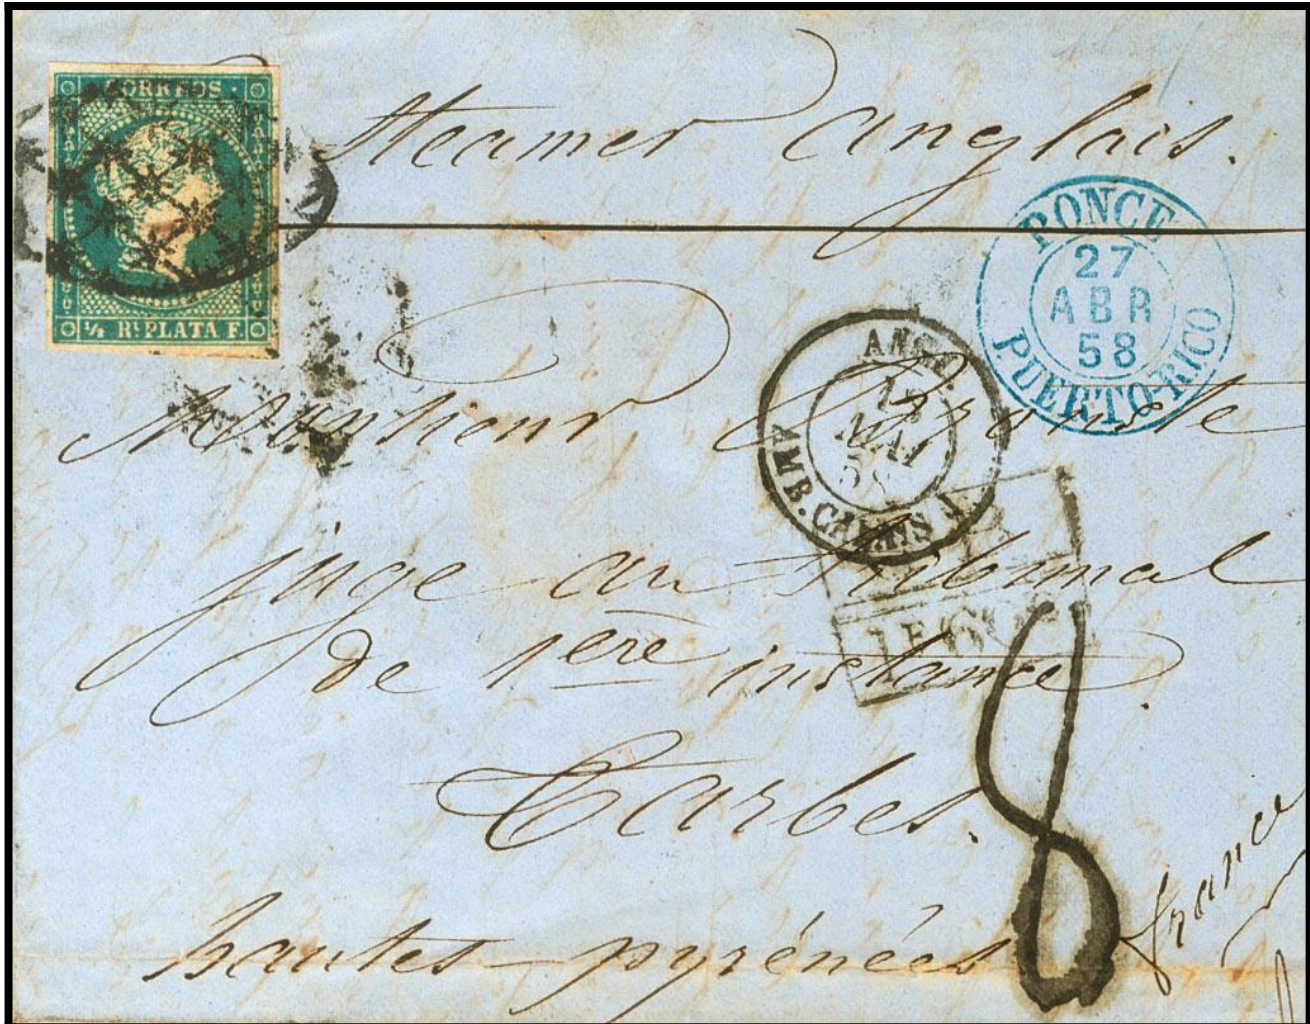 CORREOS
½ Rl. PLATA F.
Steamer anglais.
PONCE
27
ABR
58
PUERTO RICO
MAI
58
AMB. CALAIS
Monsieur
juge au tribunal
de 1ere instance
Tarbes.
8
hautes pyrénées
france